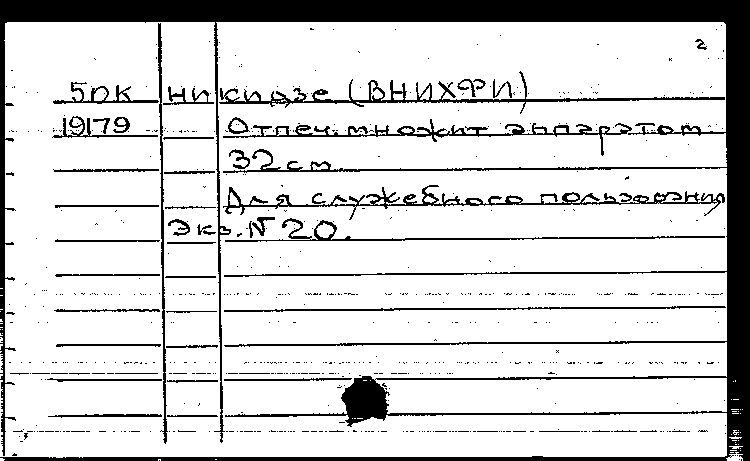 2
5рк никидзе (ВНИХФИ)
19179 Отпеч. множит аппаратом
32 см
Для служебного пользования
Экз. № 20.